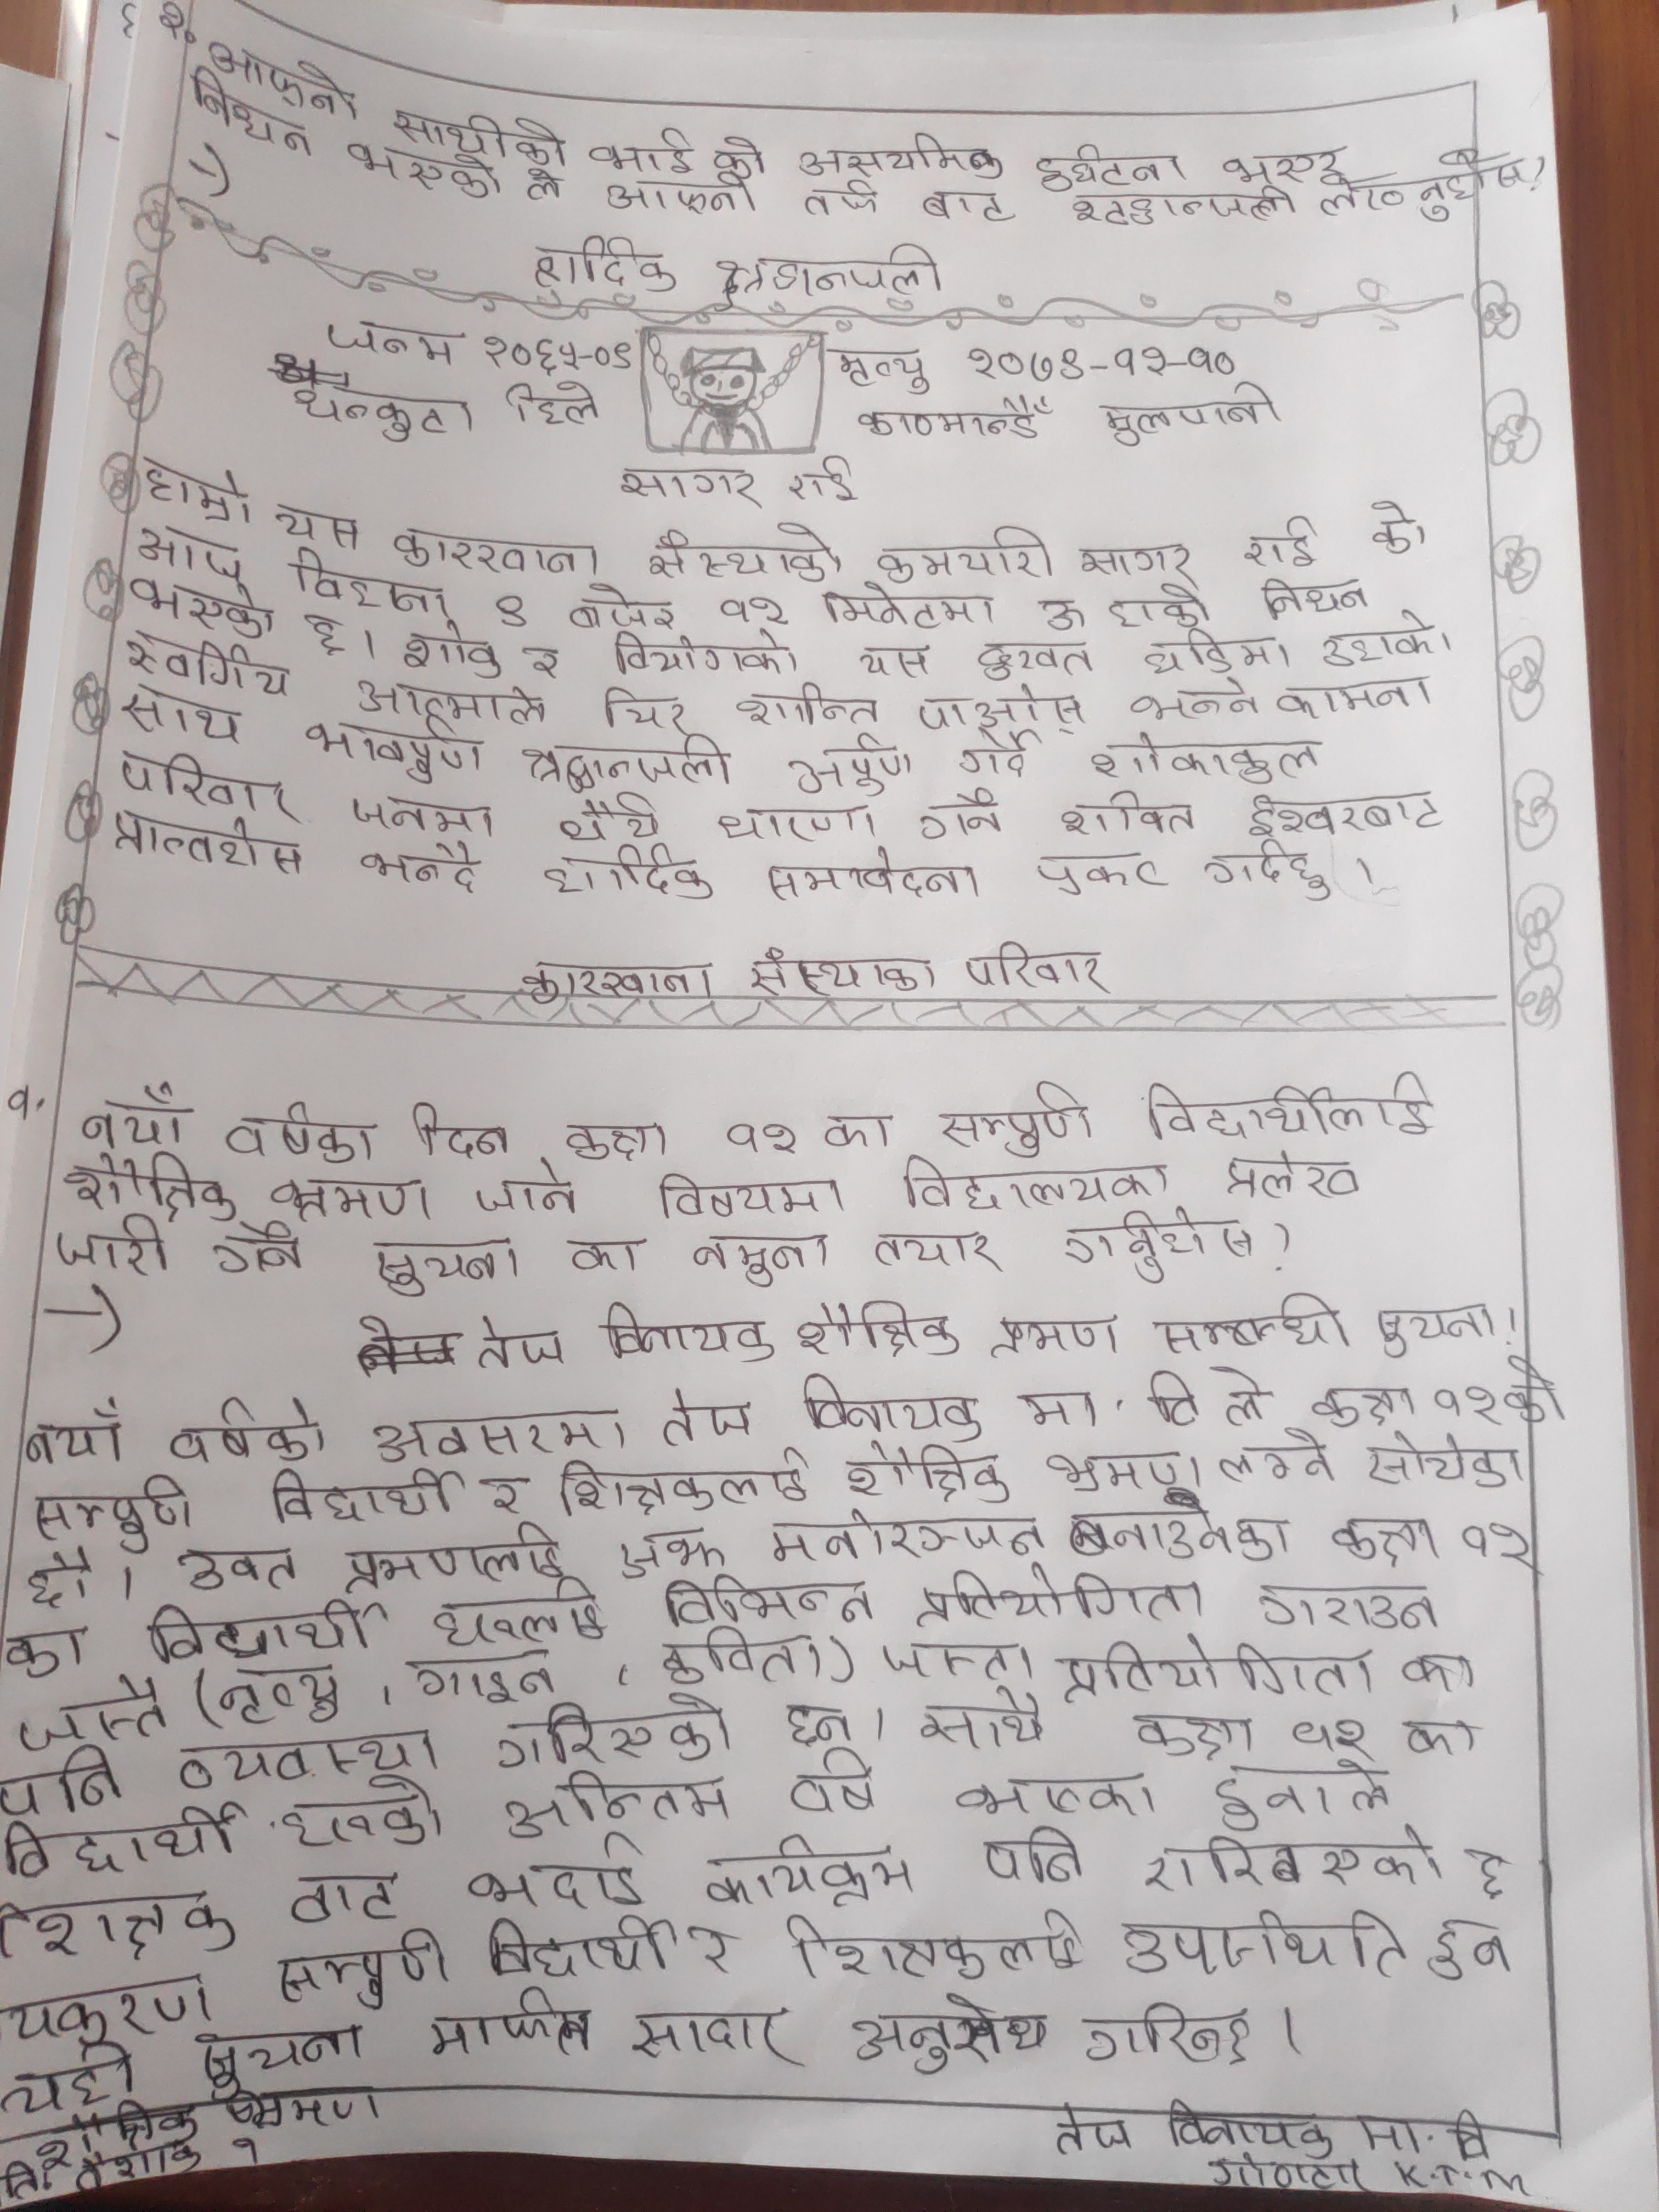 २.
आफ्नो साथीको भाई को असयमिक दुर्घटना भएर
निधन भएको ले आफ्नो तर्फ बाट श्रद्धान्जली लेख्नुहोस?
→)
हार्दिक श्रद्धानजली
जन्म २०६५-०९ मृत्यु २०७९-१२-१०
धनकुटा हिले काठमान्डौँ मुलपानी
सागर राई
हाम्रो यस कारखाना सँस्थाको कमचारी सागर राई को
आज विहान ९ बजेर १२ मिनेटमा ऊ हाको निधन
भएको छ। शोक र वियोगको यस दुखत घडिमा उहाको
स्वर्गिय आत्माले चिर शान्ति पाओस् भन्ने कामना
साथ भावपुर्ण श्रद्धान्जली अर्पुण गर्दै शोकाकुल
परिवार जनमा धैर्य धारणा गर्ने शक्ति ईश्वरबाट
प्राप्तहोस भन्दै हार्दिक समावेदना प्रकट गर्दछु।
कारखाना सँस्थाका परिवार
१.
नयाँ वर्षका दिन कक्षा १२ का सम्पुर्ण विद्यार्थीलाई
शैक्षिक भ्रमण जाने विषयमा विद्यालयका प्रलेख
जारी गर्ने सुचना का नमुना तयार गर्नुहोस?
→)
तेज विनायक शैक्षिक भ्रमण सम्बन्धी सुचना!
नयाँ वर्षको अवसरमा तेज विनायक मा. वि ले कक्षा १२को
सम्पुर्ण विद्यार्थी र शिक्षकलाई शैक्षिक भ्रमण लग्ने सोचेका
छौ। उक्त भ्रमणलाई अझ मनोरञ्जन बनाउनका कक्षा १२
का विद्यार्थी हरुलाई विभिन्न प्रतियोगिता गराउन
जस्तै (नृत्यु, गाइन, कविता) जस्ता प्रतियोगिता का
पनि व्यवस्था गरिएको छन। साथै कक्षा १२ का
विद्यार्थी हरुको अन्तिम वर्ष भएका हुनाले
शिक्षक बाट पनि कार्यक्रम राखिएको छ
सम्पुर्ण विद्यार्थी र शिक्षकलाई उपस्थिति हुन
यही सुचना मार्फत सादार अनुरोध गरिन्छ।
शैक्षिक भ्रमण
वैशाक १
तेज विनायक मा. वि
K.T.M